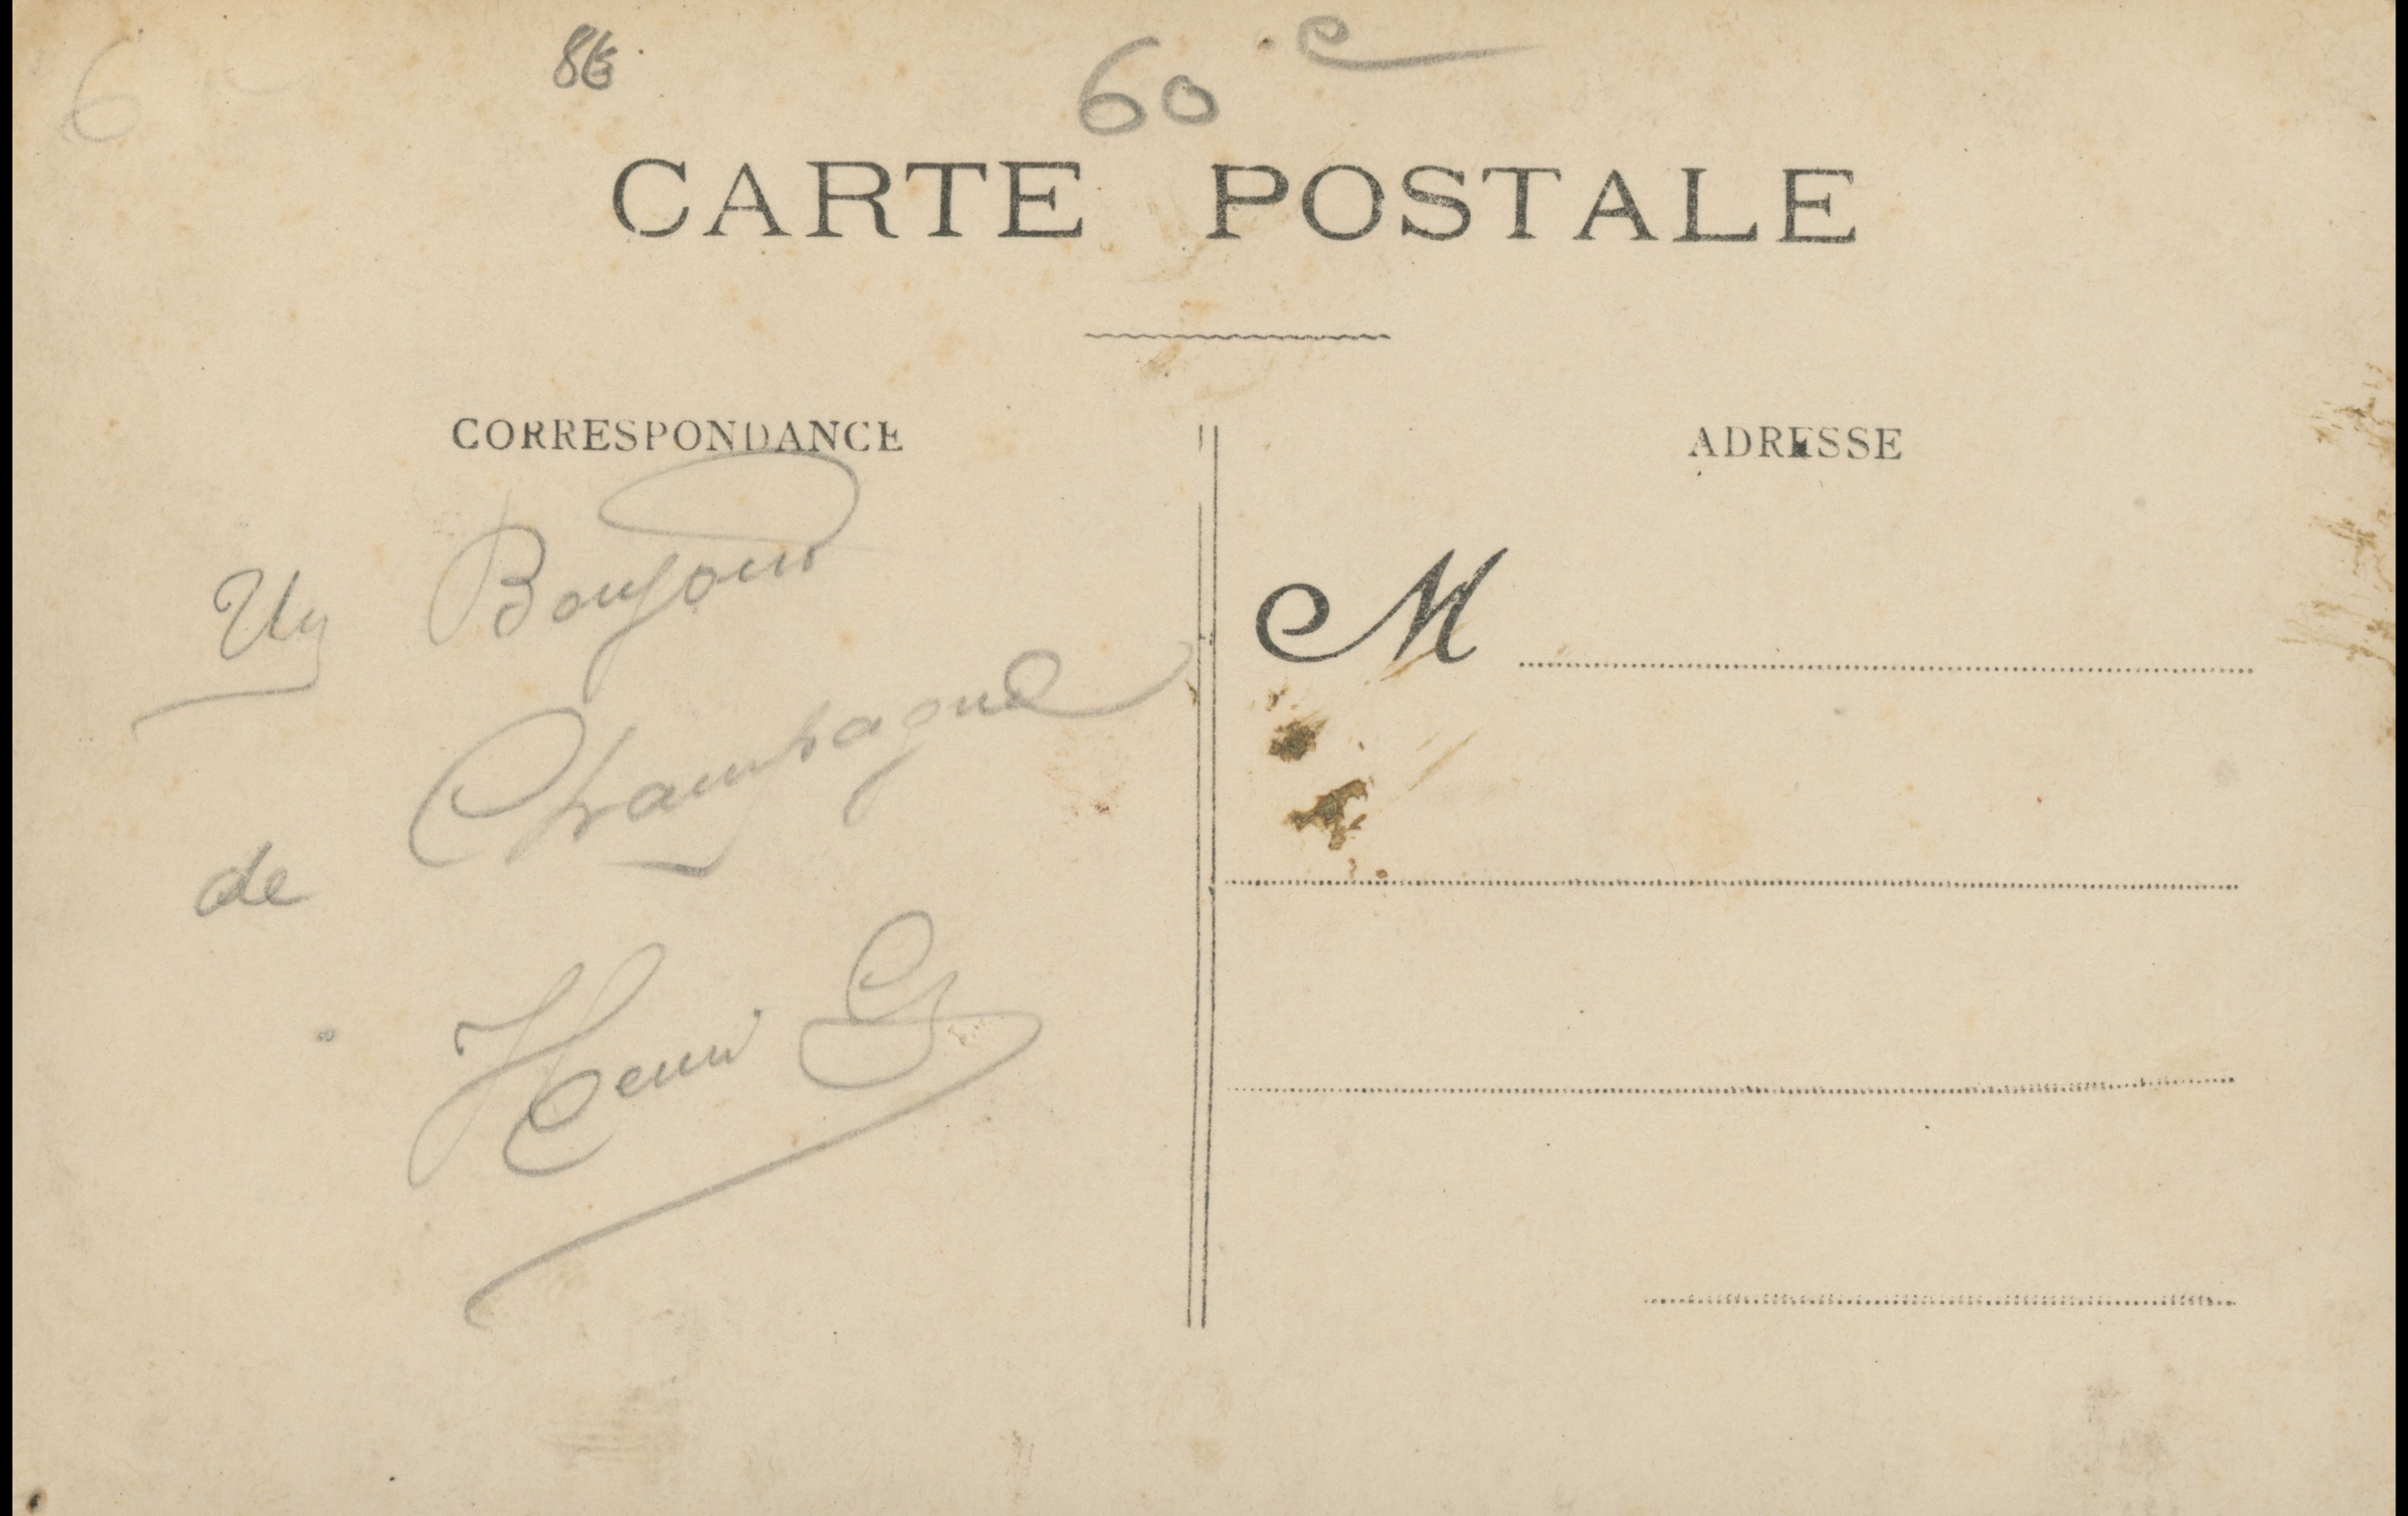 6
8€
60 c
CARTE POSTALE
CORRESPONDANCE
ADRESSE
Un Bonjour
de Champagne
Henri G
M